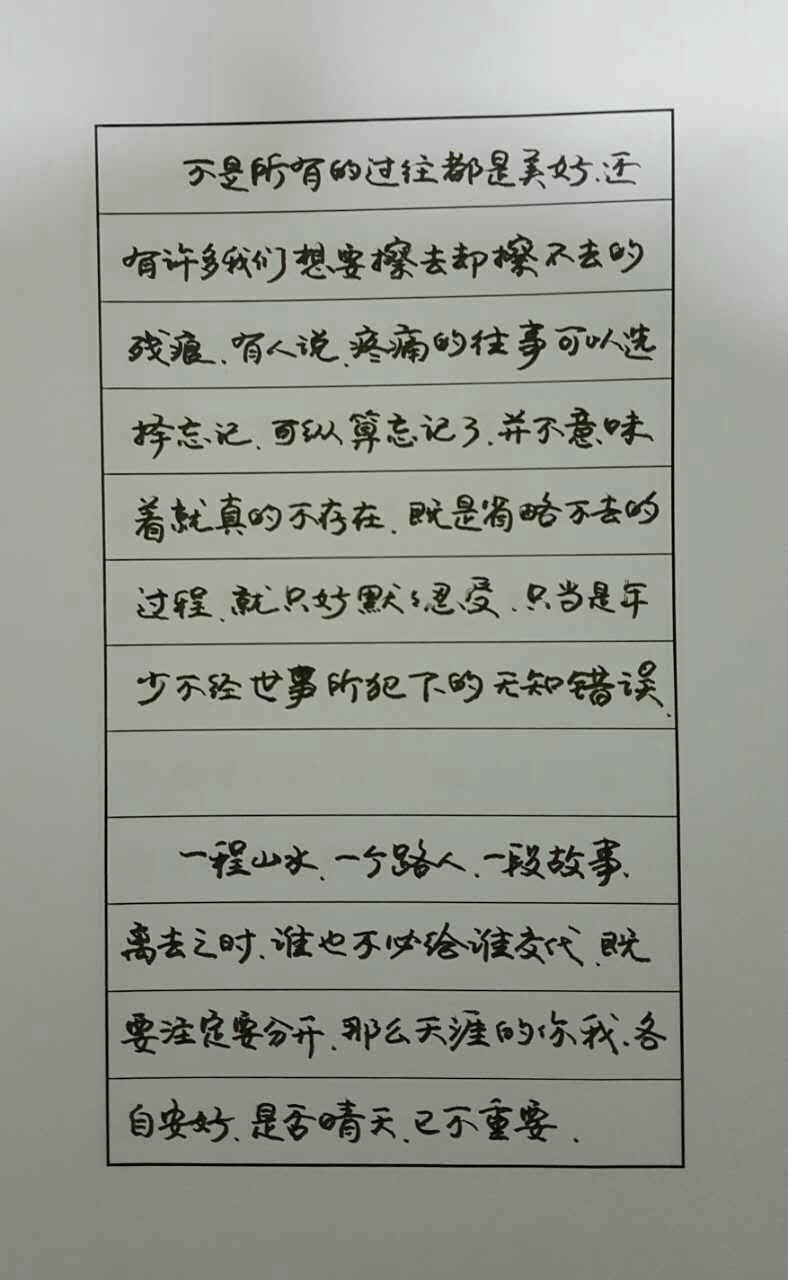 不是所有的过往都是美好、还
有许多我们想要擦去却擦不去的
残痕、有人说、疼痛的往事可以选
择忘记、可纵算忘记了、并不意味
着就真的不存在、既是省略不去的
过程、就只好默々忍受、只当是年
少不经世事所犯下的无知错误、
一程山水、一个路人、一段故事、
离去之时、谁也不必给谁交代、既
要注定要分开、那么天涯的你我、各
自安好、是否晴天、已不重要、